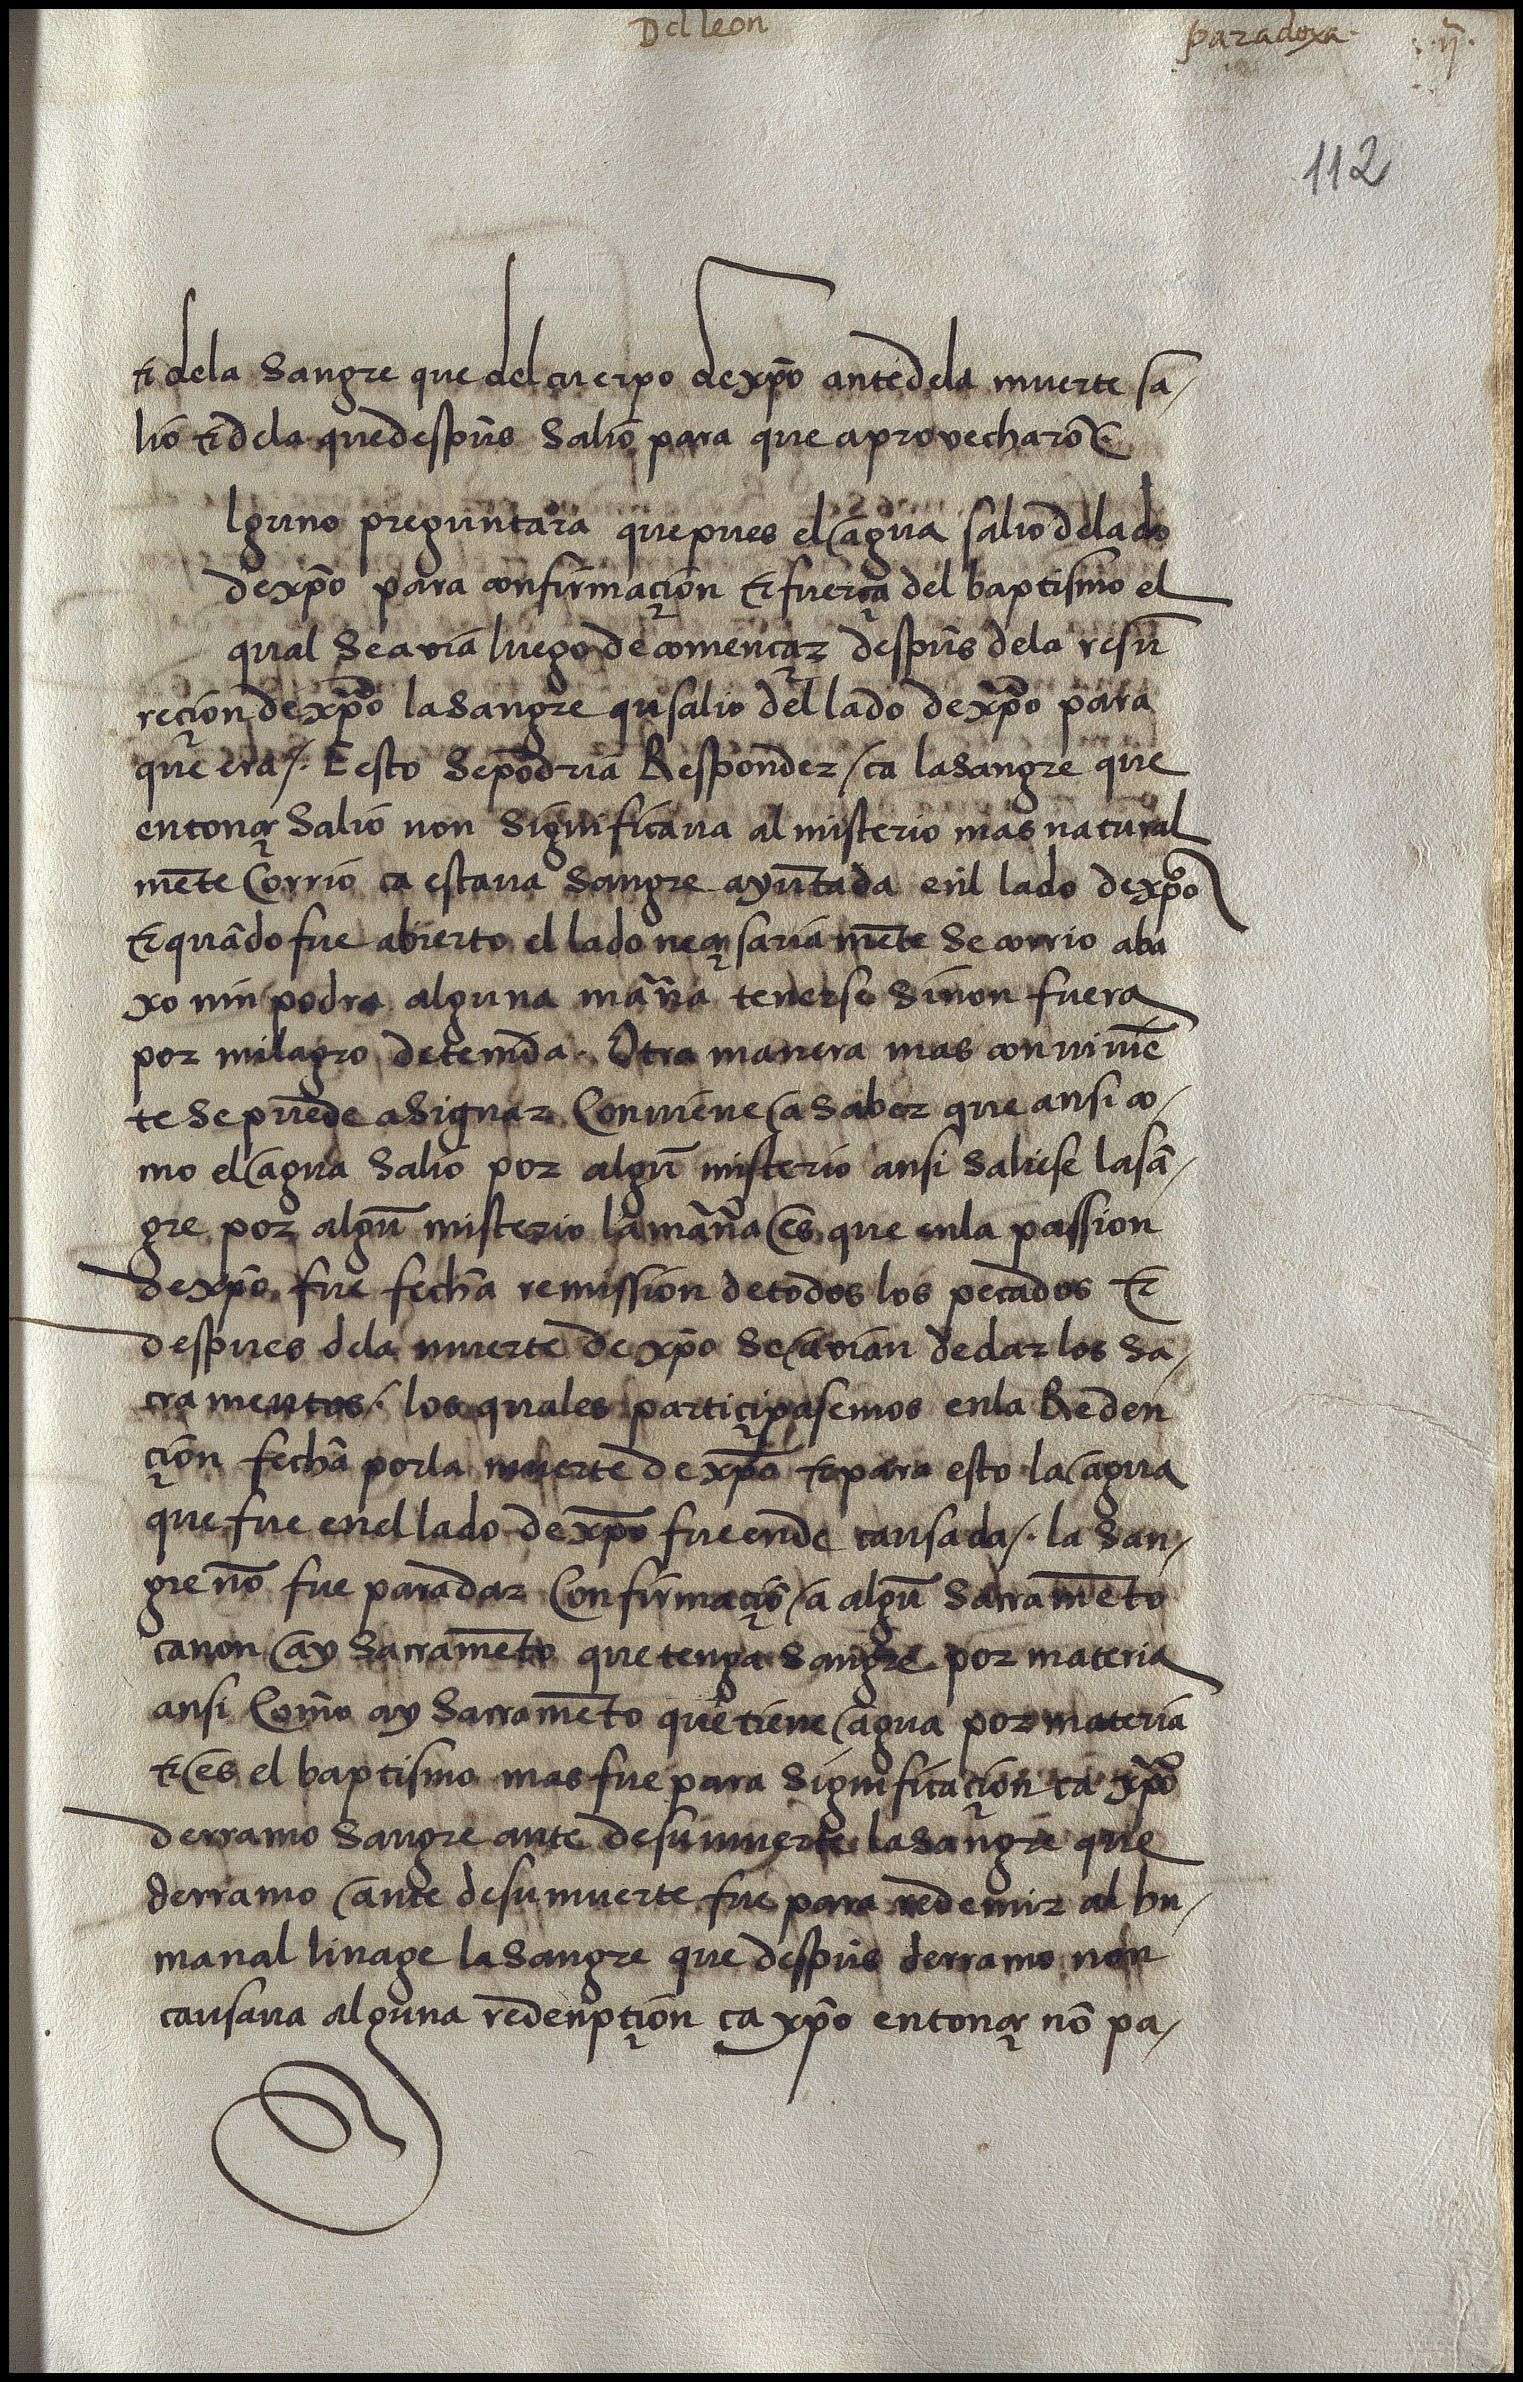 Del leon
paradoxa. .ij.
112
⁊ dela sangre que del cuerpo de xp̄o ante dela muerte sa/
lio ⁊ dela que despūs salio para que aprovecharō.
lguno preguntara que pues el agua salio de lado
de xp̄o para confirmaçion ⁊ fuerça del baptismo el
qual se avia luego de començar despūs dela resū
reçion de xp̄o la sangre qu salio del lado de xp̄o para
que era /. E esto se podria Responder / ca la sangre que
entonçes salio non significaua al misterio mas natural
mēte Corrio ca estaua sangre ayūtada enl lado de xp̄o
⁊ quādo fue abierto el lado neçesariamēte se corrio aba
xo nin podra alguna māna tenerse sinon fuera
por milagro detenida. Otra manera mas conuiniē
te se puede asignar Conuiene a saber que ansi co/
mo el agua salio por algū misterio ansi saliese la sā/
gre por algū misterio la māna es que enla passion
de xp̄o fue fecha remission de todos los pecados ⁊
despues dela muerte de xp̄o se avian de dar los sa/
cramentos / los quales participasemos enla Reden
çion fecha por la muerte de xp̄o ⁊ para esto la agua
que fue enel lado de xp̄o fue ende causada /. la san/
gre nō fue para dar Confirmaçiō a algū sacramēto
ca non ay sacramēto que tenga sangre por materia
ansi Como ay sacramēto que tiene agua por materia
⁊ es el baptismo mas fue para significaçion ca xp̄o
derramo sangre ante de su muerte la sangre que
derramo ante de su muerte fue para redemir al hu/
manal linage la sangre que despūs derramo non
causaua alguna redenpçion ca xp̄o entonçes nō pa/